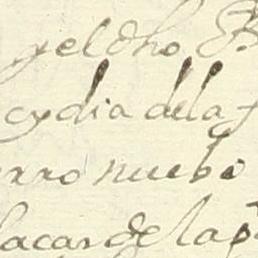 y el dho
cydia dela
erro nuebo
sacar de la p